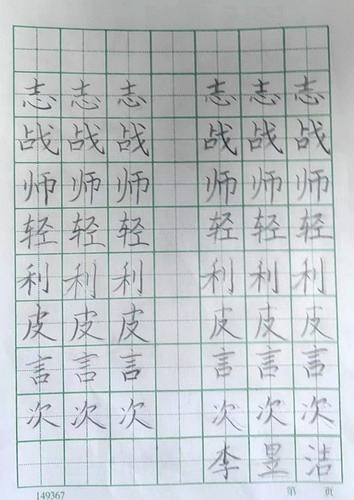 志志志志志志
战战战战战战
师师师师师师
轻轻轻轻轻轻
利利利利利利
皮皮皮皮皮皮
言言言言言言
次次次次次次
李昱洁
149367
第 页